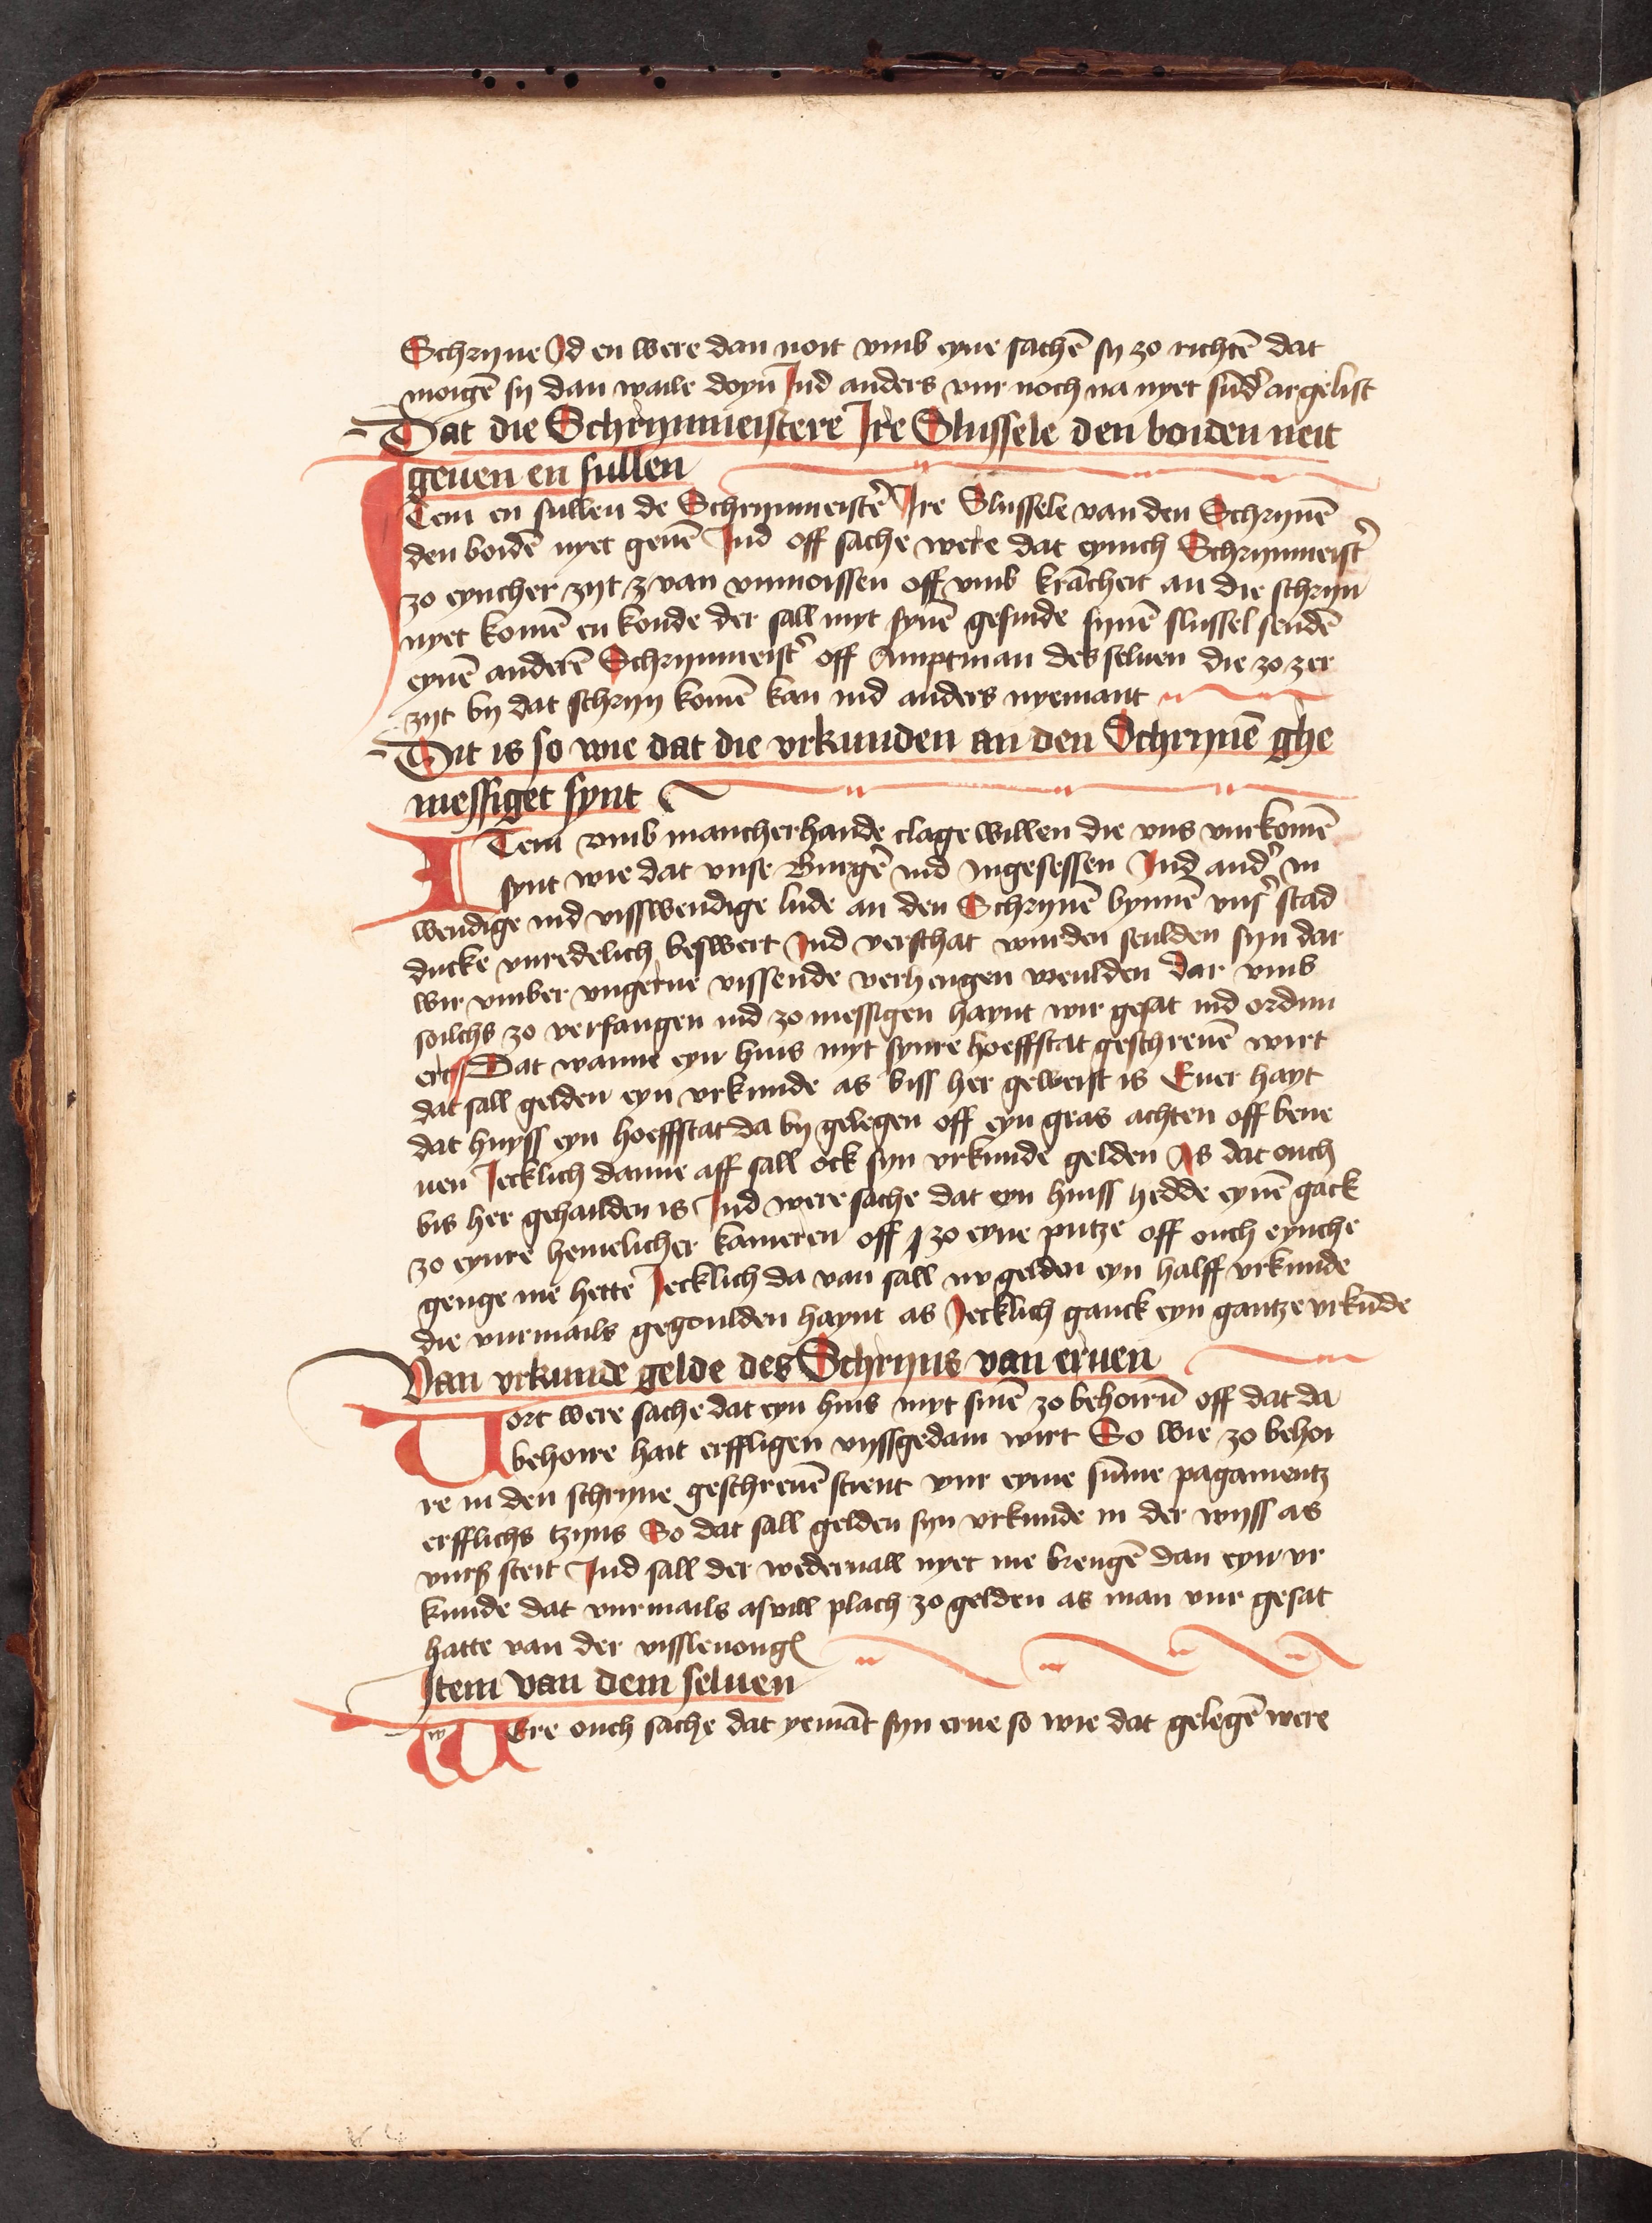 Schryne Id en were dan noit vmb eyne sachē sy zo richtē dat
moigē sy dan waile doyn Ind anders vur noch na nyet sūd' argelist
Dat die Schrynmeistere Ire Slussele den boiden neit
geuen en sullen
Item en sullen de Schrynmeist'e Ire Slussele van den Schrynē
den boidē nyet geuē Ind off sache were dat eynich Schrynmeist'
zo eyncher zyt van vnmoissen off vmb krācheit an die schryn
nyet komē en konde der sall myt synē gesinde synē slussel sendē
eynē anderē Schrynmeist' off Amptman des seluen die zo zer
zyt by dat schryn komē kan ind anders nyemant
Dit is so wie dat die vrkunden an den Schrynē ghe
messiget synt
ITem vmb mancherhande clage willen die vns vurkomē
synt wie dat vnse Burgē ind Ingesessen Ind and' in
wendige ind visswendige lude an den Schrynē bynnē vns' stad
ducke vnredelich beswert Ind verschat wurden seulden syn dar
wir vmber vngerne vissende verhengen weulden Dar vmb
soilchs zo verfangen ind zo messigen haynt wir gesat ind ordini
ert Dat wanne eyn huis myt synre hoeffstat geschreuē wirt
dat sall gelden eyn vrkunde as biss her geweist is Euer hayt
dat huyss eyn hoeffstat da by gelegen off eyn gras achten off bene
uen Iecklich danne aff sall ock syn vrkunde gelden As dat ouch
bis her gehailden is Ind were sache dat eyn huiss hedde eynē gack
zo eynre hemelicher kameren off zo eyne putze off ouch eynche
genge me hette Iecklich da van sall nv gelden eyn halff vrkunde
die vurmails gegoulden haynt as Iecklich ganck eyn gantze vrkūde
Van vrkunde gelde des Schryns van eruen
Vort were sache dat eyn huis myt sinē zo behoirū off dat da
behoire hait erffligen vyssgedain wirt So wie zo behoi
re in den schryne geschreuē stent vur eyme sūme pagamentz
erfflichs tzyns So dat sall gelden syn vrkunde in der wyss as
vurß steit Ind sall der wederuall nyet me brengē dan eyn vr
kunde dat vurmails asvill plach zo gelden as man vur gesat
hatte van der visslenong
Item van dem seluen
WEre ouch sache dat yemāt syn erue so wie dat gelegē were